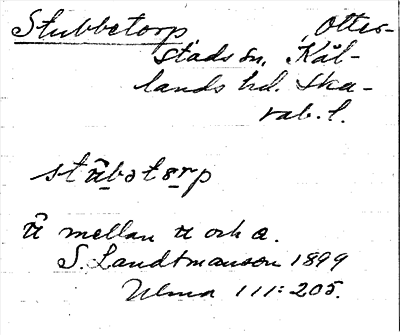 Stubbetorp, Otter-
stads sn, Kål-
lands hd. Ska-
rab. l.
mellan u och a.
S. Landtmanson 1899
Ulma 111:205.